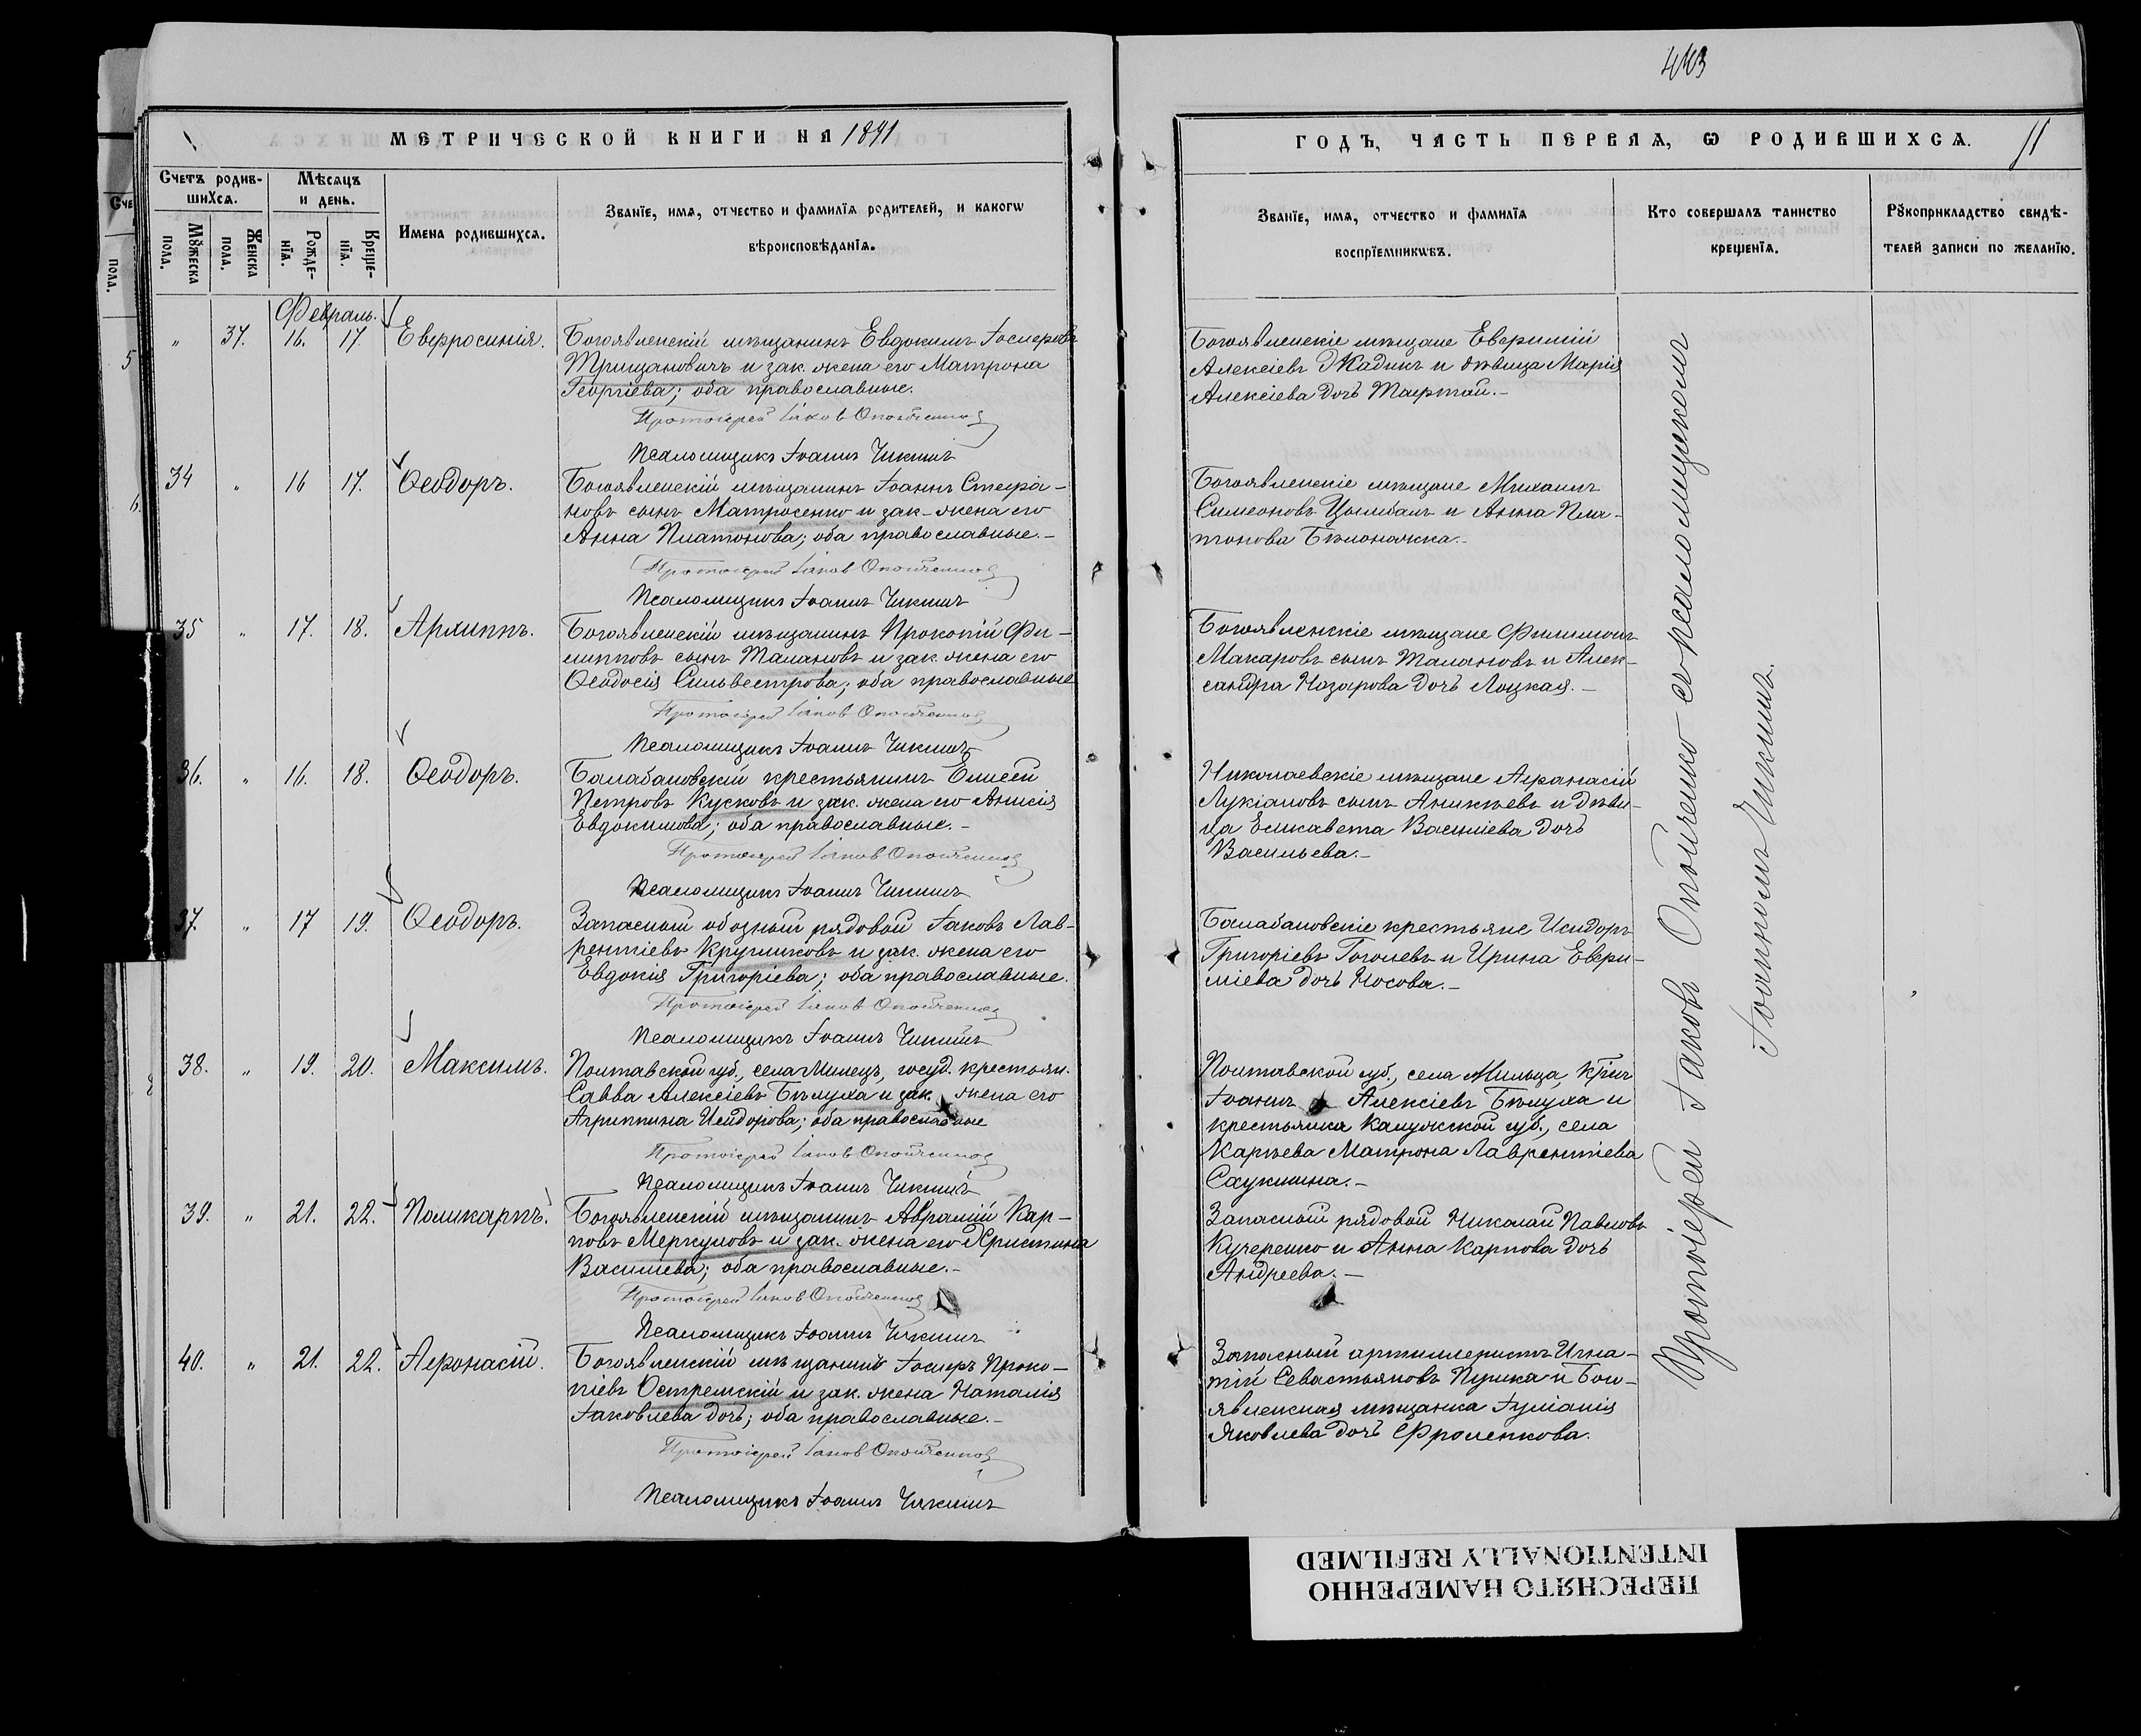 443
МЕТРИЧЕСКОЙ КНИГИ НА 1891
ГОДЪ, ЧАСТЬ ПЕРВАЯ, Ѡ РОДИВШИХСЯ.
11
Счетъ родив-
шихся.
Мѣсяцъ
и день.
Мꙋжеска
пола.
Женска
пола.
Рожде-
нїя.
Креще-
нїя.
Имена родившихся.
Званїе, имя, отчество и фамилїя родителей, и какогѡ
вѣроисповѣданїя.
Званїе, имя, отчество и фамилїя
воспрїемникѡвъ.
Кто совершалъ таинство
крещенїя.
Рꙋкоприкладство свидѣ-
телей записи по желанїю.
Февраль.
" 37. 16. 17. Евфросинія.
Богоявленскій мѣщанинъ Евдокимъ Іосифовъ
Трищановичъ и зак. жена его Матрона
Георгіева; оба православные.
Протоіерей Іаковъ Опойченко
Псаломщикъ Іоаннъ Чикинъ
Богоявленскіе мѣщане Евфимій
Алексіевъ Жадикъ и дѣвица Марія
Алексіева дочь Тафтай.-
34 " 16 17. Ѳеодоръ.
Богоявленскій мѣщанинъ Іоаннъ Стефа-
новъ сынъ Матросенко и зак. жена его
Анна Платонова; оба православные.-
Протоіерей Іаковъ Опойченко
Псаломщикъ Іоаннъ Чикинъ
Богоявленскіе мѣщане Михаилъ
Симеоновъ Цымбалъ и Анна Пла-
тонова Бѣлоножка.-
35 " 17. 18. Архиппъ.
Богоявленскій мѣщанинъ Прокопій Фи-
липповъ сынъ Талановъ и зак. жена его
Ѳеодосія Сильвестрова; оба православные
Протоіерей Іаковъ Опойченко
Псаломщикъ Іоаннъ Чикинъ
Богоявленскіе мѣщане Филимонъ
Макаровъ сынъ Талановъ и Алек-
сандра Назарова дочь Лоцкая.-
36. " 16. 18. Ѳеодоръ.
Балабановскій крестьянинъ Елисей
Петровъ Кусковъ и зак. жена его Анисія
Евдокимова; оба православные.-
Протоіерей Іаковъ Опойченко
Псаломщикъ Іоаннъ Чикинъ
Николаевскіе мѣщане Афанасій
Лукіановъ сынъ Аникѣевъ и дѣви-
ца Елисавета Василіева дочь
Васильева.-
37. " 17 19. Ѳеодоръ.
Запасный обозный рядовой Іаковъ Лав-
рентіевъ Кругликовъ и зак. жена его
Евдокія Григоріева; оба православные.
Протоіерей Іаковъ Опойченко
Псаломщикъ Іоаннъ Чикинъ
Балабановскіе крестьяне Исидоръ
Григоріевъ Гоголевъ и Ирина Евфи-
міева дочь Носова.-
38. " 19. 20. Максимъ.
Полтавской губ., села Милецъ, госуд. крестьян.
Савва Алексіевъ Бѣлуха и зак. жена его
Агриппина Исидорова; оба православные
Протоіерей Іаковъ Опойченко
Псаломщикъ Іоаннъ Чикинъ
Полтавской губ., села Мильца, кр-нъ
Іоаннъ Алексіевъ Бѣлуха и
крестьянка Калужской губ., села
Карѣева Матрона Лаврентіева
Саукина.-
39. " 21. 22. Поликарпъ.
Богоявленскій мѣщанинъ Аврамій Кар-
повъ Меркуловъ и зак. жена его Христина
Василіева; оба православные.-
Протоіерей Іаковъ Опойченко
Псаломщикъ Іоаннъ Чикинъ
Запасный рядовой Николай Павловъ
Кучеренко и Анна Карпова дочь
Андреева.-
40. " 21. 22. Афонасій.
Богоявленскій мѣщанинъ Іосифъ Проко-
піевъ Остремскій и зак. жена Наталія
Іаковлева дочь; оба православные.-
Протоіерей Іаковъ Опойченко
Псаломщикъ Іоаннъ Чикинъ
Запасный артиллеристъ Игна-
тій Севастьяновъ Пушка и Бого-
явленская мѣщанка Іуліанія
Яковлева дочь Фроленкова.
Протоіерей Іаковъ Опойченко съ псаломщикомъ
Іоанномъ Чикинъ.
ПЕРЕСНЯТО НАМЕРЕННО
INTENTIONALLY REFILMED